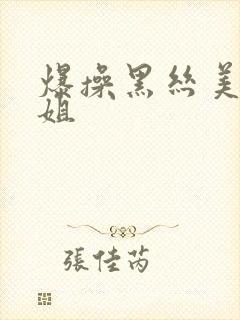 爆操黑丝美
姐
張佳芮